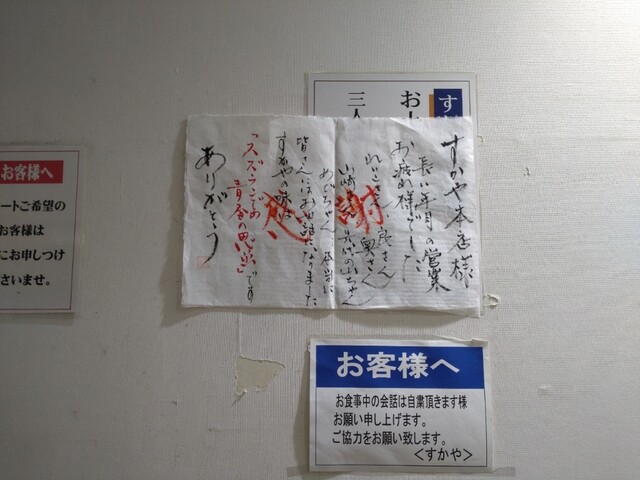 す
お
三人
すかや本店様
長い年月の営業
お疲れ様でした
皆さんにはお世話になりました
すかやの味は
「スズランでの
青春の思い出」です
ありがとう
感謝
お客様へ
ートご希望の
お客様は
にお申しつけ
さいませ。
お客様へ
お食事中の会話は自粛頂きます様
お願い申し上げます。
ご協力をお願い致します。
<すかや>